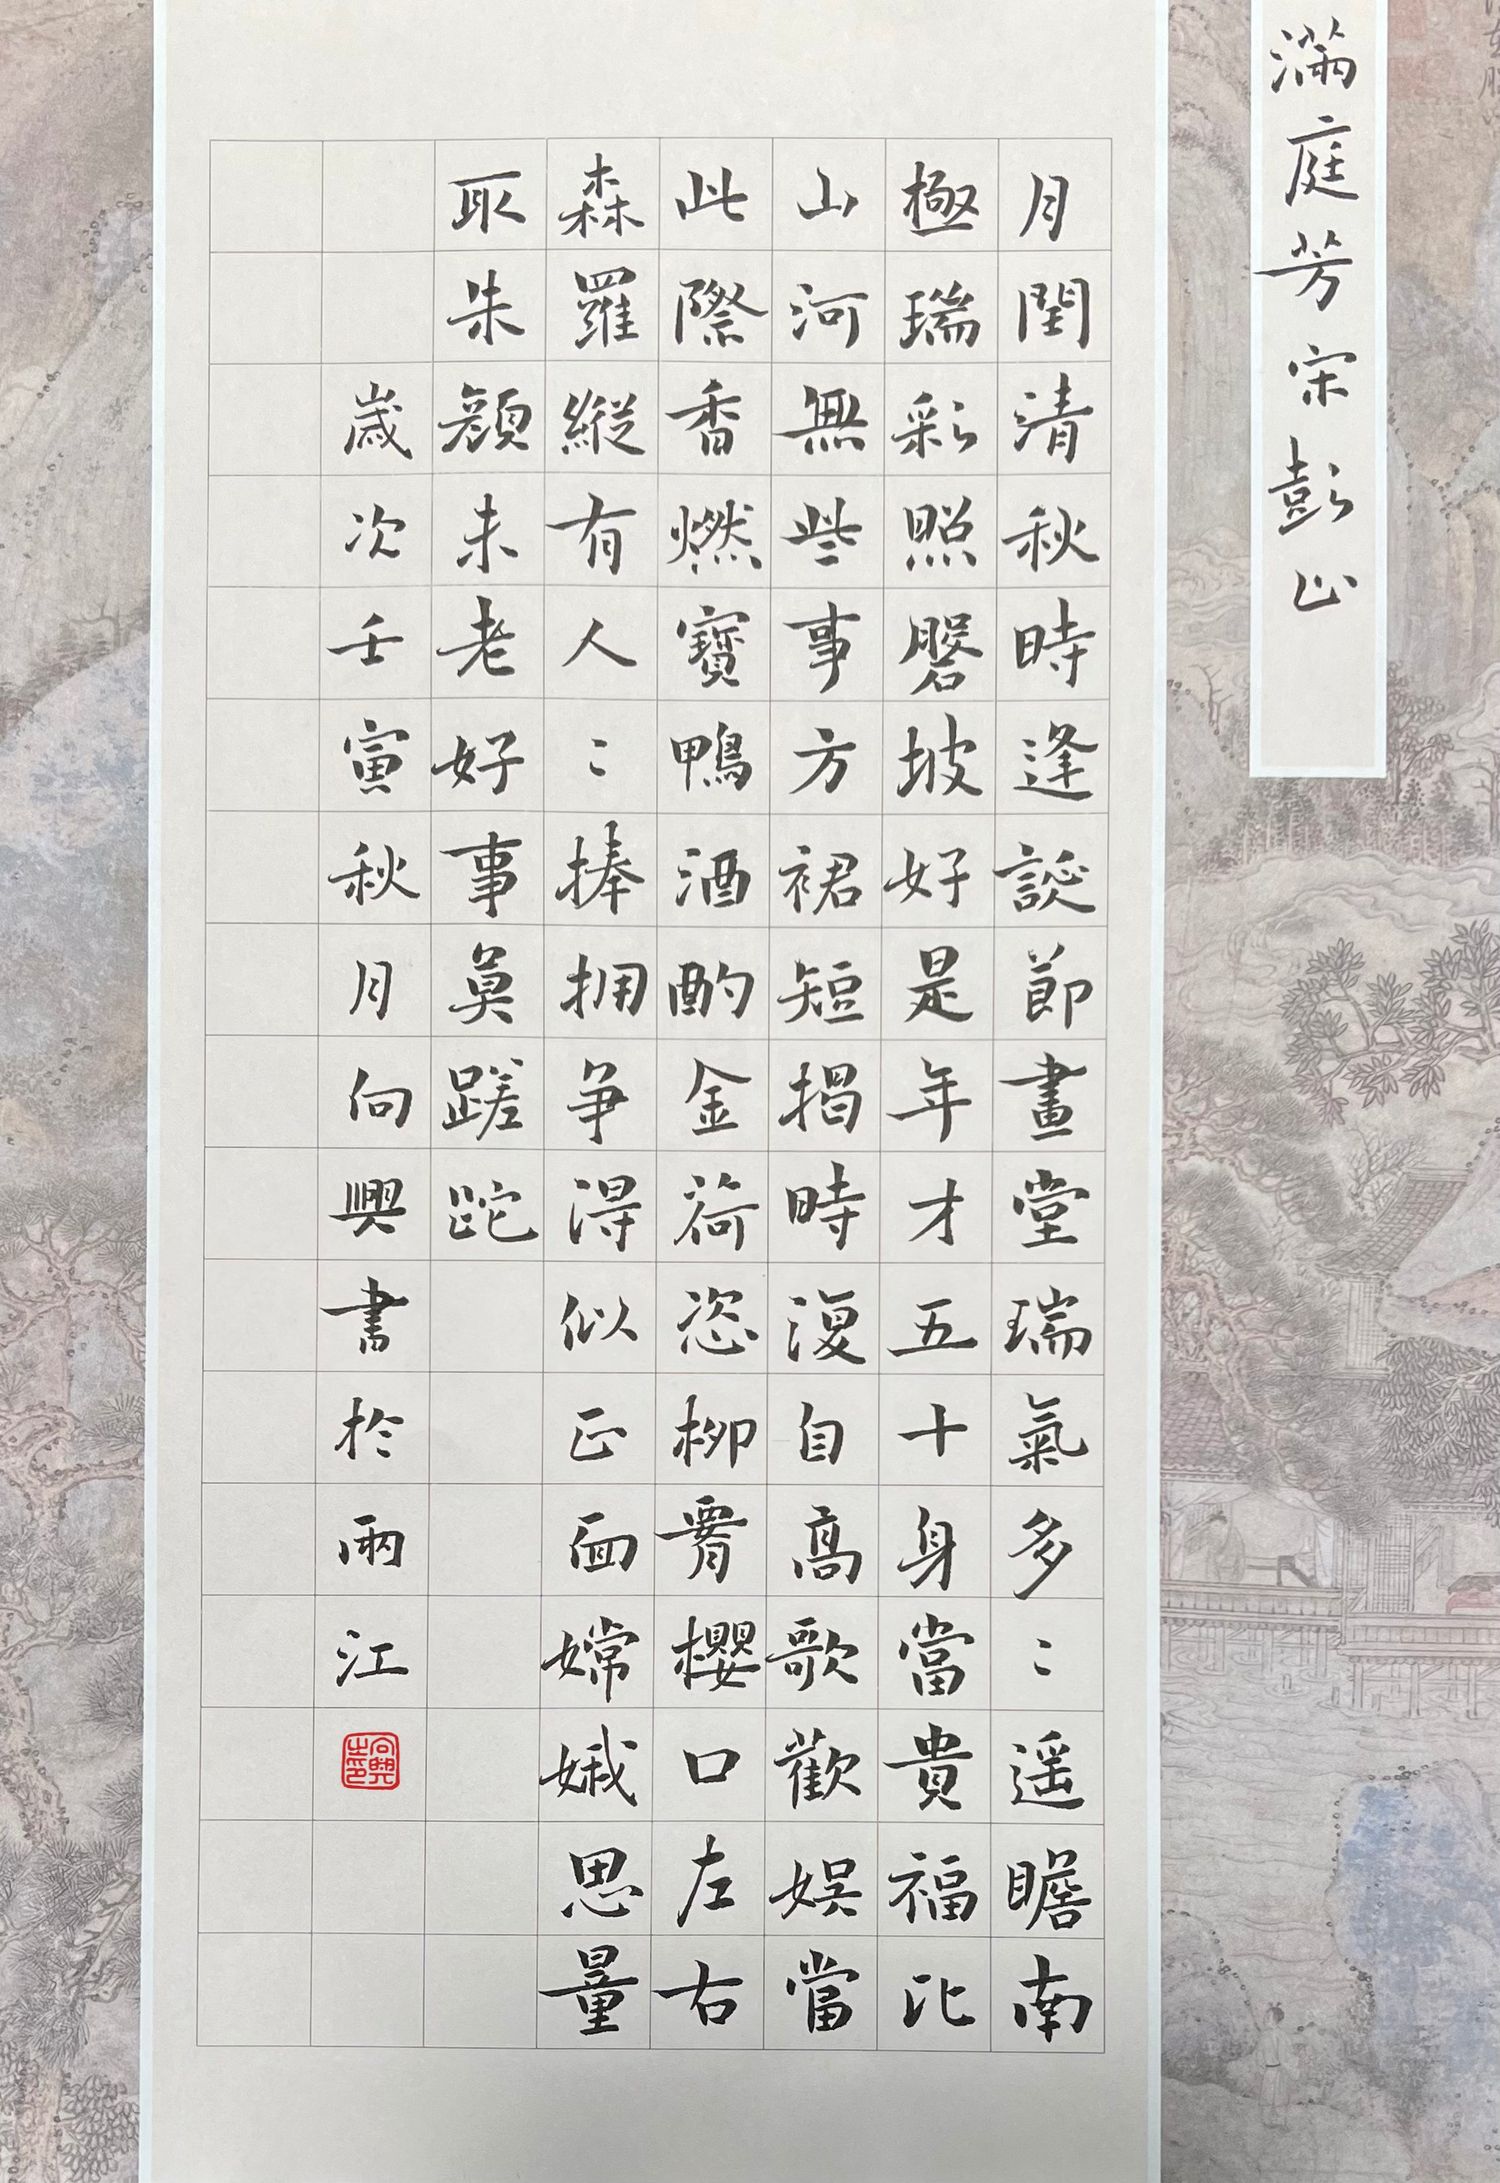 滿庭芳宋彭止
月閏清秋時逢誕節畫堂瑞氣多〻遥瞻南
極瑞彩照磐坡好是年才五十身當貴福比
山河無些事方裙短揭時復自高歌歡娛當
此際香燃寶鴨酒酌金荷恣柳腰櫻口左右
森羅縱有人〻捧拥争得似正面嫦娥思量
取朱顏未老好事莫蹉跎
歲次壬寅秋月向興書於兩江
向興之印